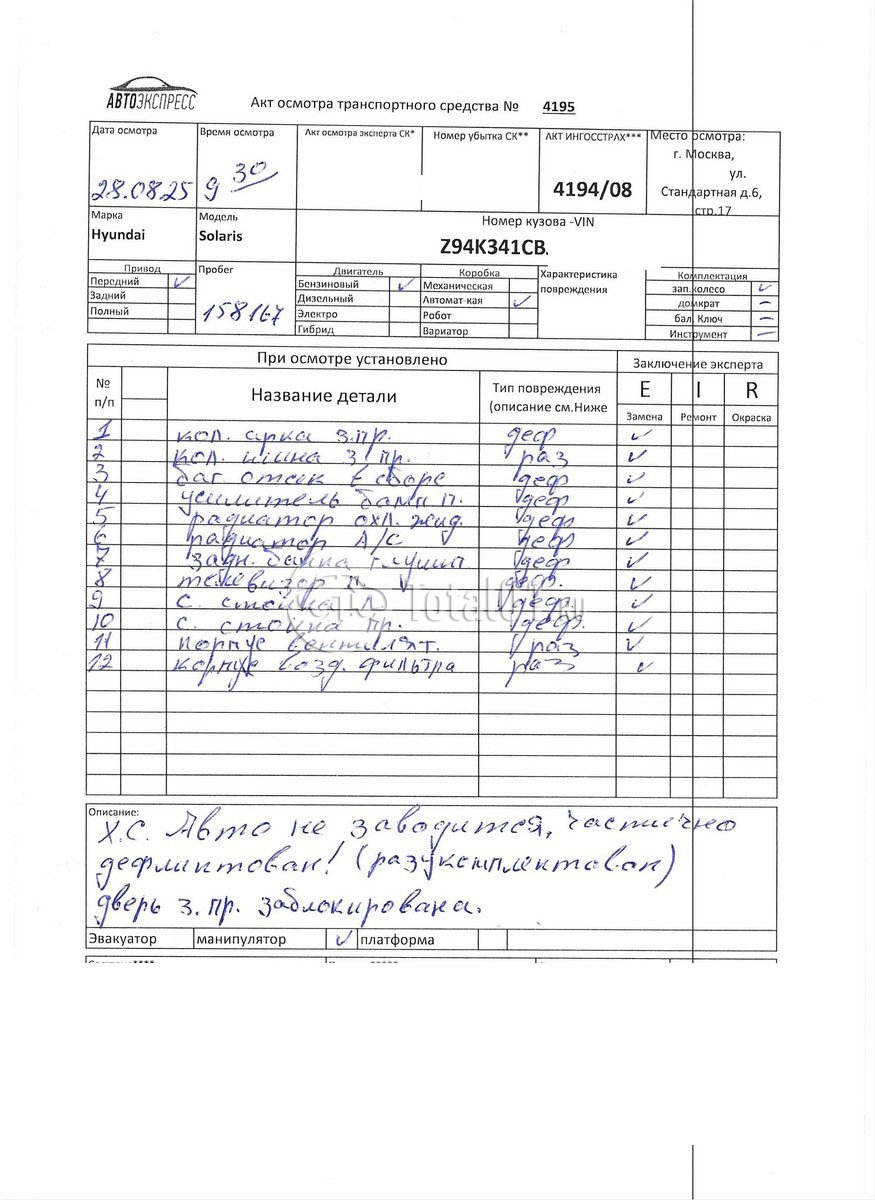 АВТОЭКСПРЕСС
Акт осмотра транспортного средства № 4195
Дата осмотра Время осмотра Акт осмотра эксперта СК* Номер убытка СК** АКТ ИНГОССТРАХ*** Место осмотра:
г. Москва,
ул.
28.08.25 9 30 4194/08 Стандартная д.6,
стр.17
Марка Модель Номер кузова -VIN
Hyundai Solaris Z94K341CB
Привод Пробег Двигатель Коробка Характеристика Комплектация
Передний Бензиновый Механическая повреждения зап.колесо
Задний Дизельный Автомат-кая домкрат
Полный 158167 Электро Робот бал. Ключ
Гибрид Вариатор Инструмент
При осмотре установлено Заключение эксперта
№ п/п Название детали Тип повреждения (описание см.Ниже E I R
Замена Ремонт Окраска
1 кол. арка з.пр. деф
2 кол. шина з пр. раз
3 баг. отсек в сборе деф
4 усилитель бамп п. деф
5 радиатор охл. жид. деф
6 радиатор А/С деф
7 задн. банка глушит деф
8 телевизор п. деф.
9 с. стойка л деф.
10 с. стойка пр. деф.
11 корпус вентилят. раз
12 корпус возд. фильтра раз
TotalCar.RU
Описание:
Х.С. Авто не заводится, частично
дефлиптован! (разукомплектован)
дверь з. пр. заблокирована.
Эвакуатор манипулятор платформа